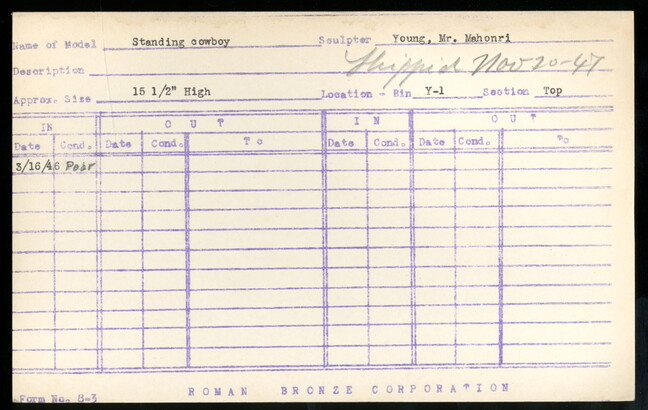 Name of Model Standing cowboy Sculptor Young, Mr. Mahonri
Description Shipped Nov 20-47
Approx. Size 15 1/2" High Location - Bin Y-1 Section Top
IN OUT IN OUT
Date Cond. Date Cond. To Date Cond. Date Cond. To
3/16/46 Poor
ROMAN BRONZE CORPORATION
Form No. 8-3